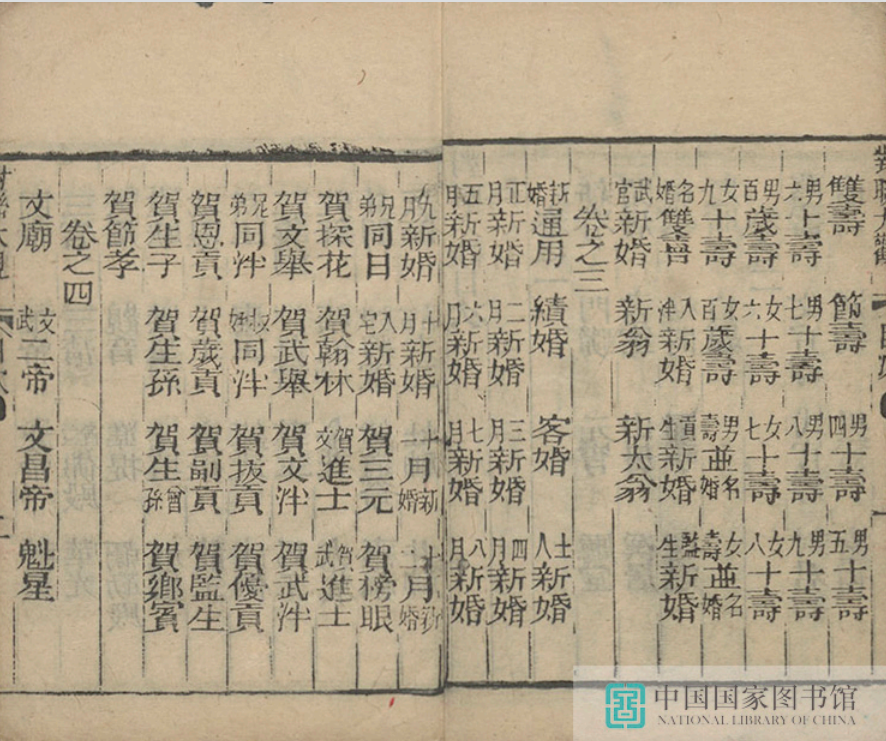 雙壽 節壽 男四十壽 男五十壽
男六十壽 男七十壽 男八十壽 男九十壽
男百歲壽 女六十壽 女七十壽 女八十壽
女九十壽 女百歲壽 男壽並名婚 女壽並名婚
名婚雙喜 入泮新婚 貢生新婚 監生新婚
武官新婚 新翁 新太翁
卷之三
新婚通用 續婚 客婚 士人新婚
正月新婚 二月新婚 三月新婚 四月新婚
五月新婚 六月新婚 七月新婚 八月新婚
九月新婚 十月新婚 十一月新婚 十二月新婚
兄弟同日 入宅新婚 賀三元 賀榜眼
賀探花 賀翰林 賀文進士 賀武進士
賀文舉 賀武舉 賀文泮 賀武泮
兄弟同泮 叔姪同泮 賀拔貢 賀優貢
賀恩貢 賀歲貢 賀副貢 賀監生
賀生子 賀生孫 賀生曾孫 賀鄉賓
賀節孝
卷之四
文廟 文武二帝 文昌帝 魁星
中国国家图书馆
NATIONAL LIBRARY OF CHINA